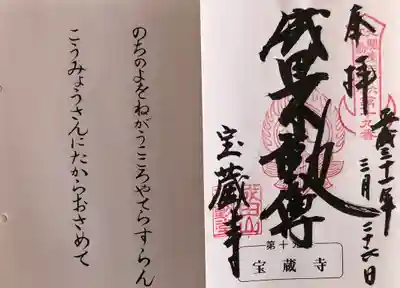 奉拝
不動尊
宝蔵寺
平成三十一年
三月二十六日
第十九番
宝蔵寺
のちのよをねがうこころやてらすらん
こうみょうさんにたからおさめて